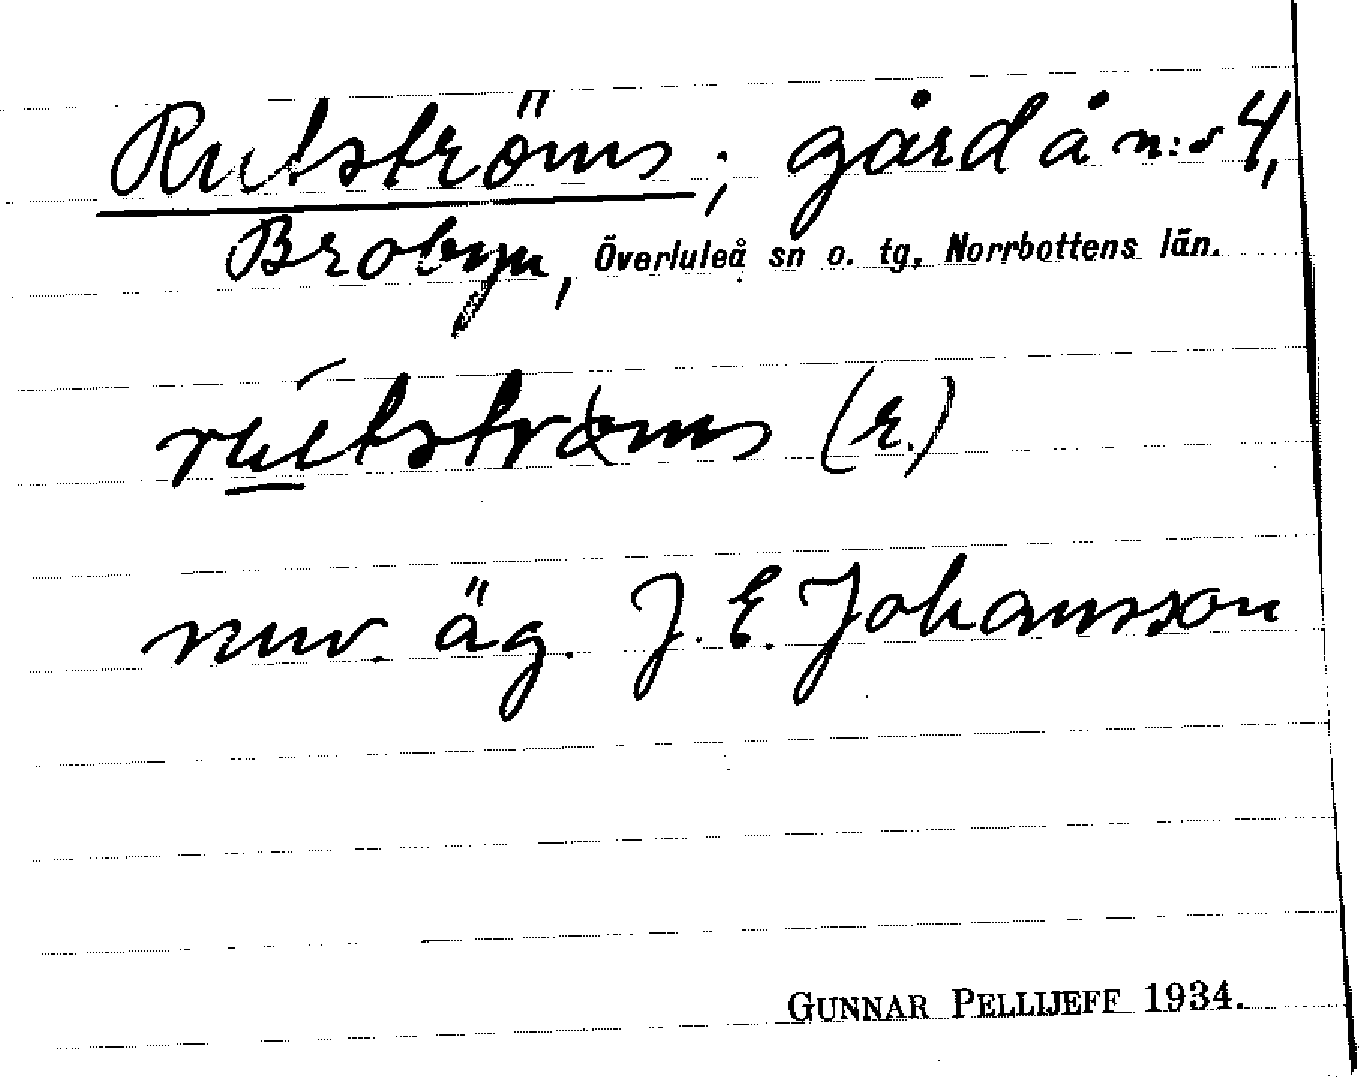 Rutströms; gård å n:o 4,
Brobyn, Överluleå sn o. tg, Norrbottens län.
rútstrøms (r.)
nuv. äg. J. E. Johansson
GUNNAR PELLIJEFF 1934.